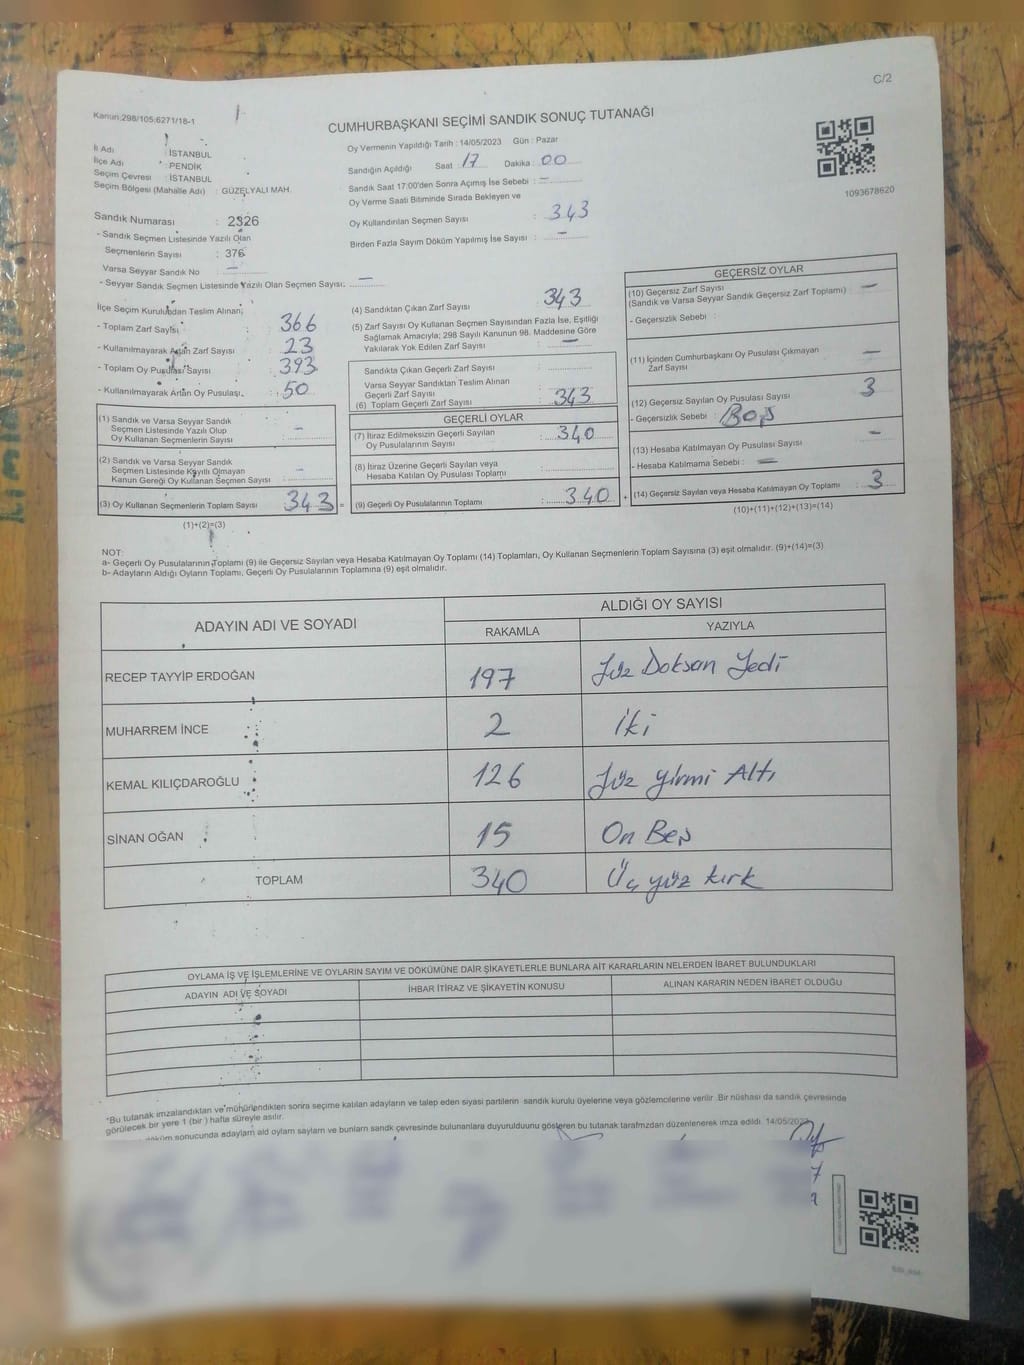 C/2
Kanun:298/105;6271/18-1
CUMHURBAŞKANI SEÇİMİ SANDIK SONUÇ TUTANAĞI
İl Adı : İSTANBUL
İlçe Adı : PENDİK
Seçim Çevresi : İSTANBUL
Seçim Bölgesi (Mahalle Adı) : GÜZELYALI MAH.
Oy Vermenin Yapıldığı Tarih : 14/05/2023 Gün : Pazar
Sandığın Açıldığı Saat : 17 Dakika : 00
Sandık Saat 17:00'den Sonra Açımış İse Sebebi : —
Oy Verme Saati Bitiminde Sırada Bekleyen ve
Oy Kullandırılan Seçmen Sayısı : 343
Birden Fazla Sayım Döküm Yapılmış İse Sayısı : —
1093678620
Sandık Numarası : 2326
- Sandık Seçmen Listesinde Yazılı Olan
Seçmenlerin Sayısı : 376
Varsa Seyyar Sandık No : —
- Seyyar Sandık Seçmen Listesinde Yazılı Olan Seçmen Sayısı: —
İlçe Seçim Kurulundan Teslim Alınan;
- Toplam Zarf Sayısı : 366
- Kullanılmayarak Artan Zarf Sayısı : 23
- Toplam Oy Pusulası Sayısı : 393
- Kullanılmayarak Artan Oy Pusulası : 50
(1) Sandık ve Varsa Seyyar Sandık
Seçmen Listesinde Yazılı Olup
Oy Kullanan Seçmenlerin Sayısı : —
(2) Sandık ve Varsa Seyyar Sandık
Seçmen Listesinde Kayıtlı Olmayan
Kanun Gereği Oy Kullanan Seçmen Sayısı : —
(3) Oy Kullanan Seçmenlerin Toplam Sayısı : 343 =
(1)+(2)=(3)
(4) Sandıktan Çıkan Zarf Sayısı : 343
(5) Zarf Sayısı Oy Kullanan Seçmen Sayısından Fazla İse, Eşitliği
Sağlamak Amacıyla; 298 Sayılı Kanunun 98. Maddesine Göre
Yakılarak Yok Edilen Zarf Sayısı : —
Sandıkta Çıkan Geçerli Zarf Sayısı :
Varsa Seyyar Sandıktan Teslim Alınan
Geçerli Zarf Sayısı :
(6) Toplam Geçerli Zarf Sayısı : 343
GEÇERLİ OYLAR
(7) İtiraz Edilmeksizin Geçerli Sayılan
Oy Pusulalarının Sayısı : 340
(8) İtiraz Üzerine Geçerli Sayılan veya
Hesaba Katılan Oy Pusulası Toplamı :
(9) Geçerli Oy Pusulalarının Toplamı : 340 +
GEÇERSİZ OYLAR
(10) Geçersiz Zarf Sayısı : —
(Sandık ve Varsa Seyyar Sandık Geçersiz Zarf Toplamı)
- Geçersizlik Sebebi :
(11) İçinden Cumhurbaşkanı Oy Pusulası Çıkmayan
Zarf Sayısı : —
(12) Geçersiz Sayılan Oy Pusulası Sayısı : 3
- Geçersizlik Sebebi : Boş
(13) Hesaba Katılmayan Oy Pusulası Sayısı : —
- Hesaba Katılmama Sebebi : —
(14) Geçersiz Sayılan veya Hesaba Katılmayan Oy Toplamı : 3
(10)+(11)+(12)+(13)=(14)
NOT:
a- Geçerli Oy Pusulalarının Toplamı (9) ile Geçersiz Sayılan veya Hesaba Katılmayan Oy Toplamı (14) Toplamları, Oy Kullanan Seçmenlerin Toplam Sayısına (3) eşit olmalıdır. (9)+(14)=(3)
b- Adayların Aldığı Oyların Toplamı, Geçerli Oy Pusulalarının Toplamına (9) eşit olmalıdır.
ADAYIN ADI VE SOYADI ALDIĞI OY SAYISI
RAKAMLA YAZIYLA
RECEP TAYYİP ERDOĞAN 197 Yüz Doksan Yedi
MUHARREM İNCE 2 İki
KEMAL KILIÇDAROĞLU 126 Yüz yirmi Altı
SİNAN OĞAN 15 On Beş
TOPLAM 340 Üç yüz kırk
OYLAMA İŞ VE İŞLEMLERİNE VE OYLARIN SAYIM VE DÖKÜMÜNE DAİR ŞİKAYETLERLE BUNLARA AİT KARARLARIN NELERDEN İBARET BULUNDUKLARI
ADAYIN ADI VE SOYADI İHBAR İTİRAZ VE ŞİKAYETİN KONUSU ALINAN KARARIN NEDEN İBARET OLDUĞU
*Bu tutanak imzalandıktan ve mühürlendikten sonra seçime katılan adayların ve talep eden siyasi partilerin sandık kurulu üyelerine veya gözlemcilerine verilir. Bir nüshası da sandık çevresinde
görülecek bir yere 1 (bir) hafta süreyle asılır.
sonucunda adayların ald oyların sayların ve bunların sandk çevresinde bulunanlara duyurulduunu gösteren bu tutanak tarafmzdan düzenlenerek imza edildi. 14/05/2023